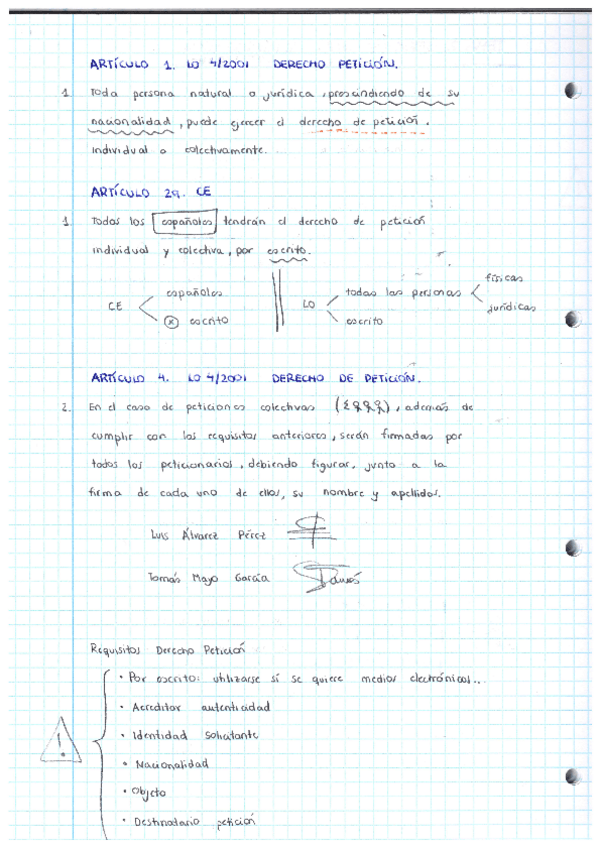 ARTÍCULO 1. LO 4/2001 DERECHO PETICIÓN.
1. Toda persona natural o jurídica, prescindiendo de su
nacionalidad, puede ejercer el derecho de petición.
individual o colectivamente.
ARTÍCULO 29. CE
1. Todos los españoles tendrán el derecho de petición
individual y colectiva, por escrito.
CE españoles escrito
LO todas las personas físicas jurídicas escrito
ARTÍCULO 4. LO 4/2001 DERECHO DE PETICIÓN.
2. En el caso de peticiones colectivas ( ), además de
cumplir con los requisitos anteriores, serán firmadas por
todos los peticionarios, debiendo figurar, junto a la
firma de cada uno de ellos, su nombre y apellidos.
Luis Álvarez Pérez
Tomás Mayo García
Requisitos Derecho Petición
• Por escrito: utilizarse si se quiere medios electrónicos...
• Acreditar autenticidad
• Identidad solicitante
• Nacionalidad
• Objeto
• Destinatario petición
!